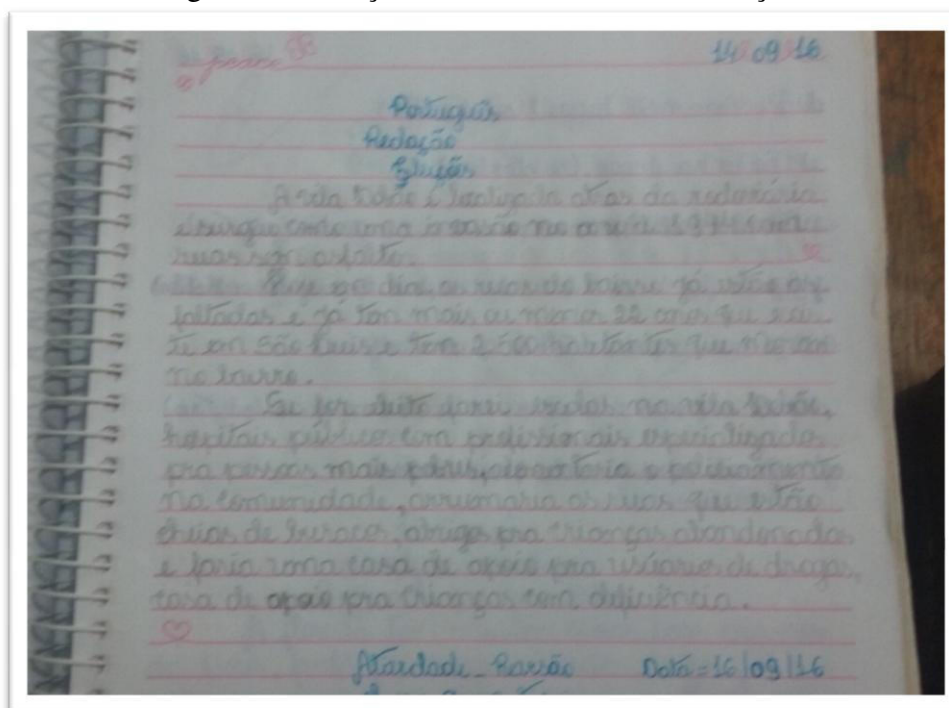 14/09/16
Português
Redação
Eleições
A vila é localizada atras da rodoviária
e surgiu como uma invasão no
ruas sem asfalto.
Hoje em dia as ruas do bairro já estão as
faltadas e já tem mais ou menos 22 anos que exis
te em São Luis e tem 2.500 habitantes que moram
no bairro.
Se for eleito farei na vila
hospitais público com profissionais especializado
pra pessoas mais pobres, e policiamento
na comunidade, arrumaria as ruas que estão
cheias de buracos, abrigo pra crianças abandonadas
e faria uma casa de apoio pra usúarios de drogas,
casa de apoio pra crianças com deficiência.
Data = 16/09/16